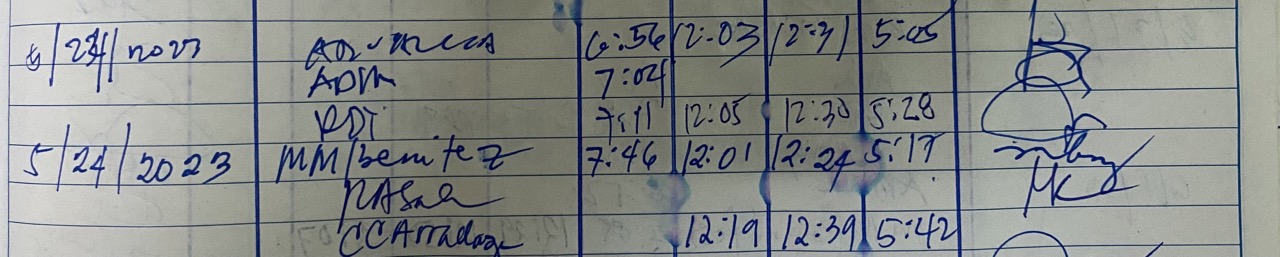 5/24/2023 6:56 12:03 12:31 5:05
ADM 7:04
RDJ 7:11 12:05 12:30 5:28
5/24/2023 MMBenitez 7:46 12:01 12:24 5:17
12:19 12:39 5:42